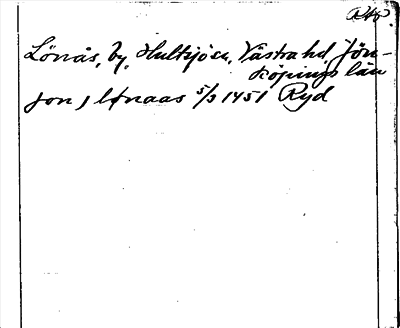 RAp
Lönås, by, Hultsjö sn, Västra hd, Jön-
köpings län
jon j lønaas 5/3 1451 Ryd